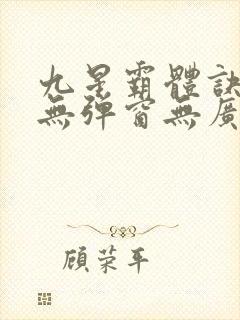 九星霸體訣
無彈窗無廣
顧榮平